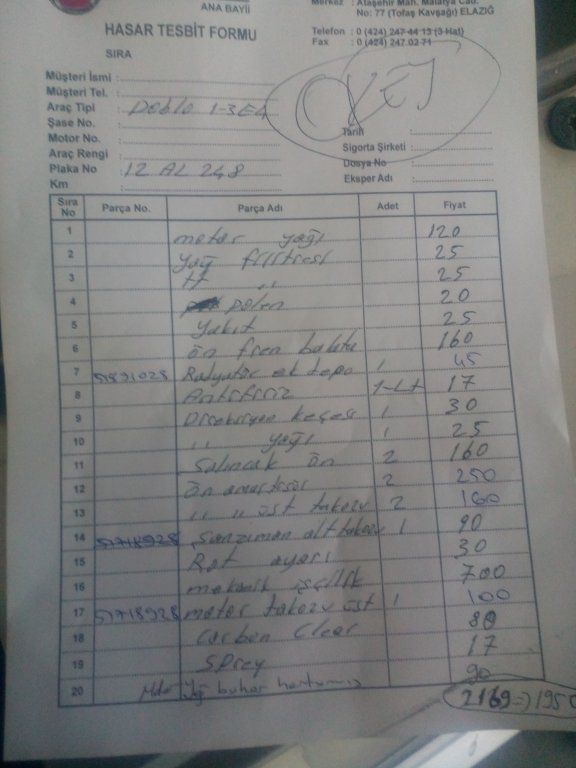 ANA BAYİİ
Merkez : Ataşehir Mah. Malatya Cad.
No: 77 (Tofaş Kavşağı) ELAZIĞ
HASAR TESBİT FORMU
Telefon : 0 (424) 247 44 13 (3 Hat)
Fax : 0 (424) 247 02 71
SIRA
Müşteri İsmi :
Müşteri Tel. :
Araç Tipi : Doblo 1-3
Şase No. :
Motor No. :
Araç Rengi :
Plaka No : 12 AL 248
Km :
Tarih :
Sigorta Şirketi :
Dosya No :
Eksper Adı :
Sıra No Parça No. Parça Adı Adet Fiyat
1 motor yağı 120
2 yağ filitresi 25
3 " 25
4 polen 20
5 yakıt 25
6 ön fren balata 160
7 51891028 Radyatör ek depo 1 45
8 Antifiriz 1-Lt 17
9 Direksiyon keçesi 1 30
10 " yağı 1 25
11 Salıncak ön 2 160
12 ön amortisör 2 250
13 " " üst takozu 2 160
14 51718928 Şanzıman alt takozu 1 90
15 Rot ayarı 30
16 mekanik işçilik 700
17 51718928 motor takozu üst 1 100
18 Carbon Clear 80
19 Sprey 17
20 Motor Yağ buhar hortumu 90
2169 => 1950